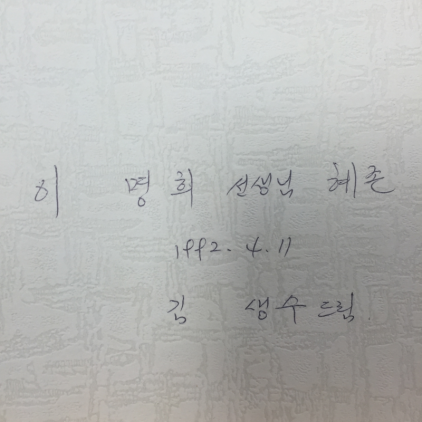 이 명희 선생님 혜존
1992. 4. 11
김 생수 드림